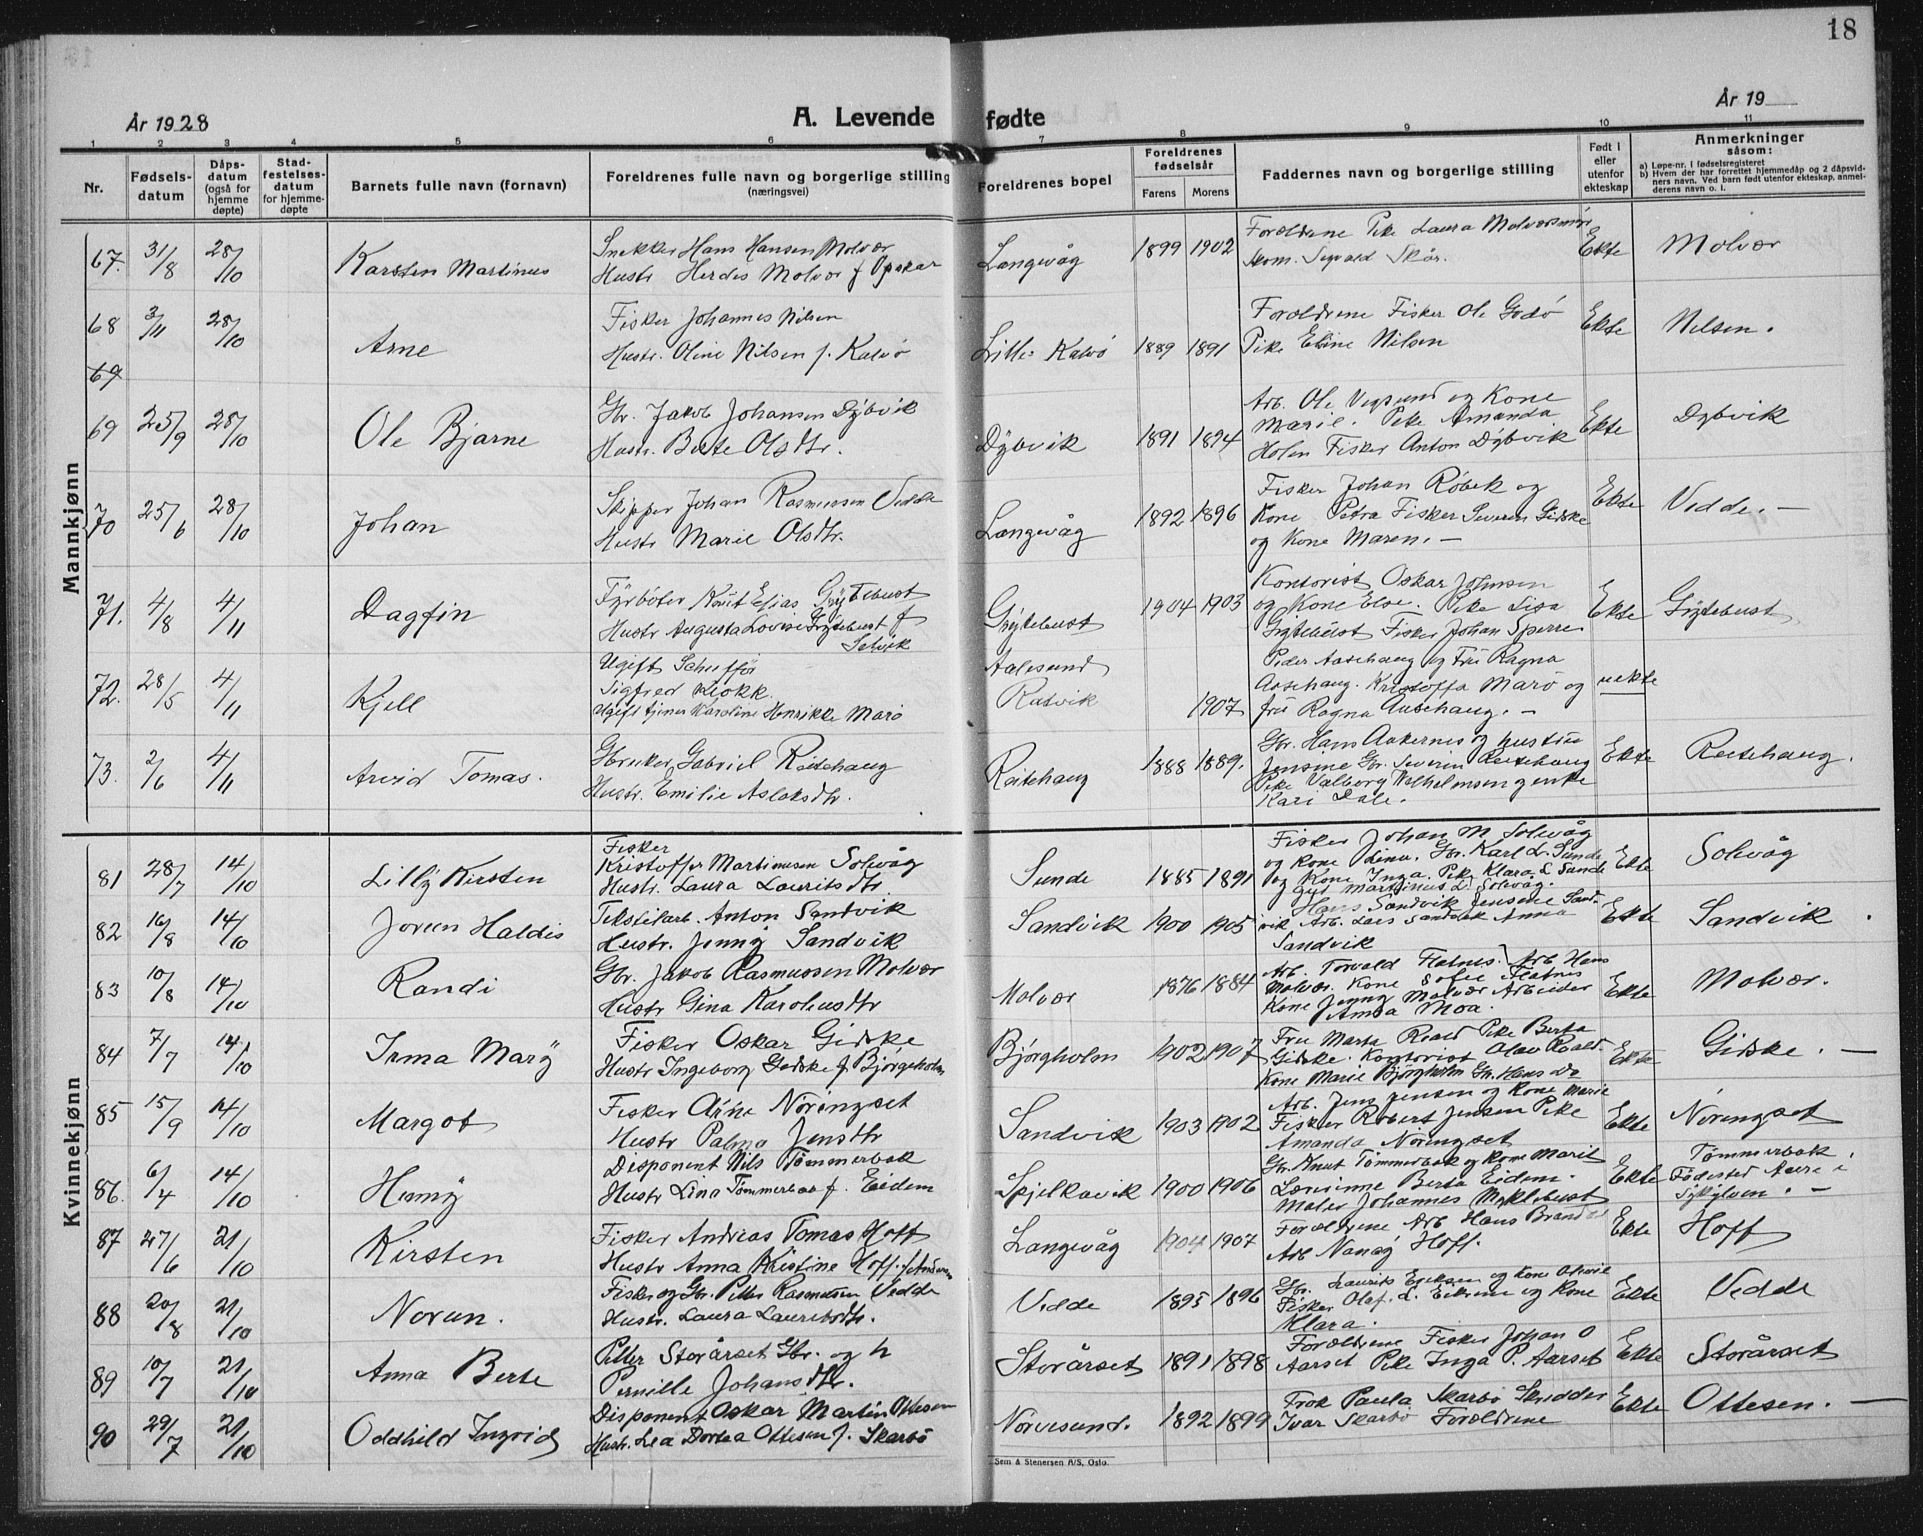 18
År 1928
A. Levende fødte
År 19
1 2 3 4 5 6 7 8 9 10 11
Nr.
Fødsels-datum
Dåps-datum (også for hjemme døpte)
Stad-festelses-datum for hjemme-døpte
Barnets fulle navn (fornavn)
Foreldrenes fulle navn og borgerlige stilling
(næringsvei)
Foreldrenes bopel
Foreldrenes fødselsår
Farens Morens
Faddernes navn og borgerlige stilling
Født i eller utenfor ekteskap
Anmerkninger
såsom:
a) Løpe-nr. i fødselsregisteret
b) Hvem der har forrettet hjemmedåp og 2 dåpsvid-
ners navn. Ved barn født utenfor ekteskap, anmel-
derens navn o. l.
Mannkjønn
67. 31/8 28/10 Karsten Martinus
Snekker Hans Hansen Molvær
Hustr Herdis Molvær f Opskar
Langevåg 1899 1902
Forældrene Pike Laura
Skom. Sigvald Skår.
Ekte Molvær
68 3/11 28/10 Arne
Fisker Johannes Nilsen
Hustr. Oline Nilsen f. Kalvø
Lille-Kalvø 1889 1891
Forældrene Fisker Ole Godø
Pike Eline Nilsen
Ekte Nilsen.
69
69 25/9 28/10 Ole Bjarne
Gbr. Jakob Johansen Dybvik
Hustr. Berte Olsdtr.
Dybvik 1891 1894
Arb. Ole Vegsund og Kone
Marie. Pike Amanda
Holen Fisker Anton Dybvik
Ekte Dybvik
70 25/6 28/10 Johan
Skipper Johan Rasmussen Vedde
Hustr Marie Olsdtr.
Langevåg 1892 1896
Fisker Johan Røbek og
Kone Petra Fisker Severin Giske
og Kone Maren. —
Ekte Vedde. —
71. 4/8 4/11 Dagfin
Fyrbøter Knut Elias Gytebust
Hustr Augusta Lovise Gytebust f
Selvik
1904 1903
Kontorist Oskar Johnsen
og Kone Else. Pike Lisa
Gytebust Fisker Johan Sperre
Ekte Gytebust
72. 28/5 4/11 Kjell
Ugift Schuffør
Sigfred Klokk.
Ugift tjener Karoline Henrikke Marø
Aalesund
Ratvik 1907
Peder Aasehaug og Fru Ragna
Aasehaug. Kristoffa Marø og
fru Ragna Aasehaug. —
uekte
73. 2/6 4/11 Arvid Tomas.
Gbruker Gabriel Reitehaug
Hustr. Emilie Aslaksdtr.
Reitehaug 1888 1889.
Gbr. Hans Aakernes og hustru
Jensine Gbr. Severin Reitehaug
Pike Valborg Vilhelmsen og enke
Kari Dale.
Ekte Reitehaug.
Kvinnekjønn
81 28/7 14/10 Lilly Kirsten
Fisker
Kristoffer Martinusen Solevåg
Hustr. Laura Lauritsdtr.
Sunde 1885 1891
Fisker Johan M Solevåg
og kone Lina. Gbr. Karl L. Sunde
og Kone Inga. Pike Klara L Sunde
Martinus L. Solevåg.
Ekte Solevåg
82 16/8 14/10 Haldis
Tekstilarb. Anton Sandvik
Hustr. Jenny Sandvik
Sandvik 1900 1905
Hans Sandvik Jensine Sand-
vik Arb. Lars Sandvik Anna
Sandvik
Ekte Sandvik
83 10/8 14/10 Randi
Gbr. Jakob Rasmussen Molvær
Hustr Gina Karoliusdtr
Molvær 1876 1884
Arb. Torvald Flatnes. Arb Hans
Molvær. Kone Sofie Flatnes
Kone Jenny Molvær Arbeider
Moa.
Ekte Molvær.
84 7/7 14/10 Irma Mary
Fisker Oskar Gidske
Hustr Ingeborg Gidske f Bjørgeholm
Bjørgholm 1902 1907
Fru Marta Roald Pike Berta
Gidske. Kontorist Olav Roald.
Kone Marie Bjørgholm Gbr. Hans do
Ekte Gidske. —
85 15/9 14/10 Margot
Fisker Arne Nøringset
Hustr Palma Jensdtr
Sandvik 1903 1902
Arb. Jens Jensen og Kone Marie
Fisker Robert Jensen Pike
Amanda Nøringset
Ekte Nøringset
86. 6/4 14/10
Disponent Nils Tømmerbak
Hustr Lina Tømmerbak f. Eidem
Spjelkavik 1900 1906
Gbr. Knut Tømmerbak og kone Marit
Lærerinne Berta Eidem.
Maler Johannes Myklebust
Ekte Tømmerbak.
Fødested Aure i
Sykylven. —
87 27/6 21/10 Kirsten
Fisker Andreas Tomas Hoff
Hustr Anna Kristine Hoff
Langevåg 1904 1907
Forældrene Arb Hans
Arb Hoff.
Ekte Hoff
88 20/8 21/10 Norun.
Fisker og Gbr. Petter Rasmussen Vedde
Hustr. Laura
Vedde 1895 1896
Gbr. Laurits Eriksen og Kone
Fisker Olaf. L. og Kone
Klara.
Ekte Vedde
89 10/7 21/10 Anna Berte
Petter Storårset Gbr. og h
Pernille Johansdtr.
Storårset 1891 1898
Forældrene Fisker Johan O
Aarset Pike Inga P. Aarset
Ekte Storårset
90 29/7 21/10 Oddhild Ingvid
Disponent Oskar Martin Ottesen
Hustr. Lea Dortea Ottesen f. Skarbø
Nørvesund. 1892 1899
Frøk Paula Skarbø Skredder
Ivar Skarbø Forældrene
Ekte Ottesen. —
Sem & Stenersen A/S, Oslo.